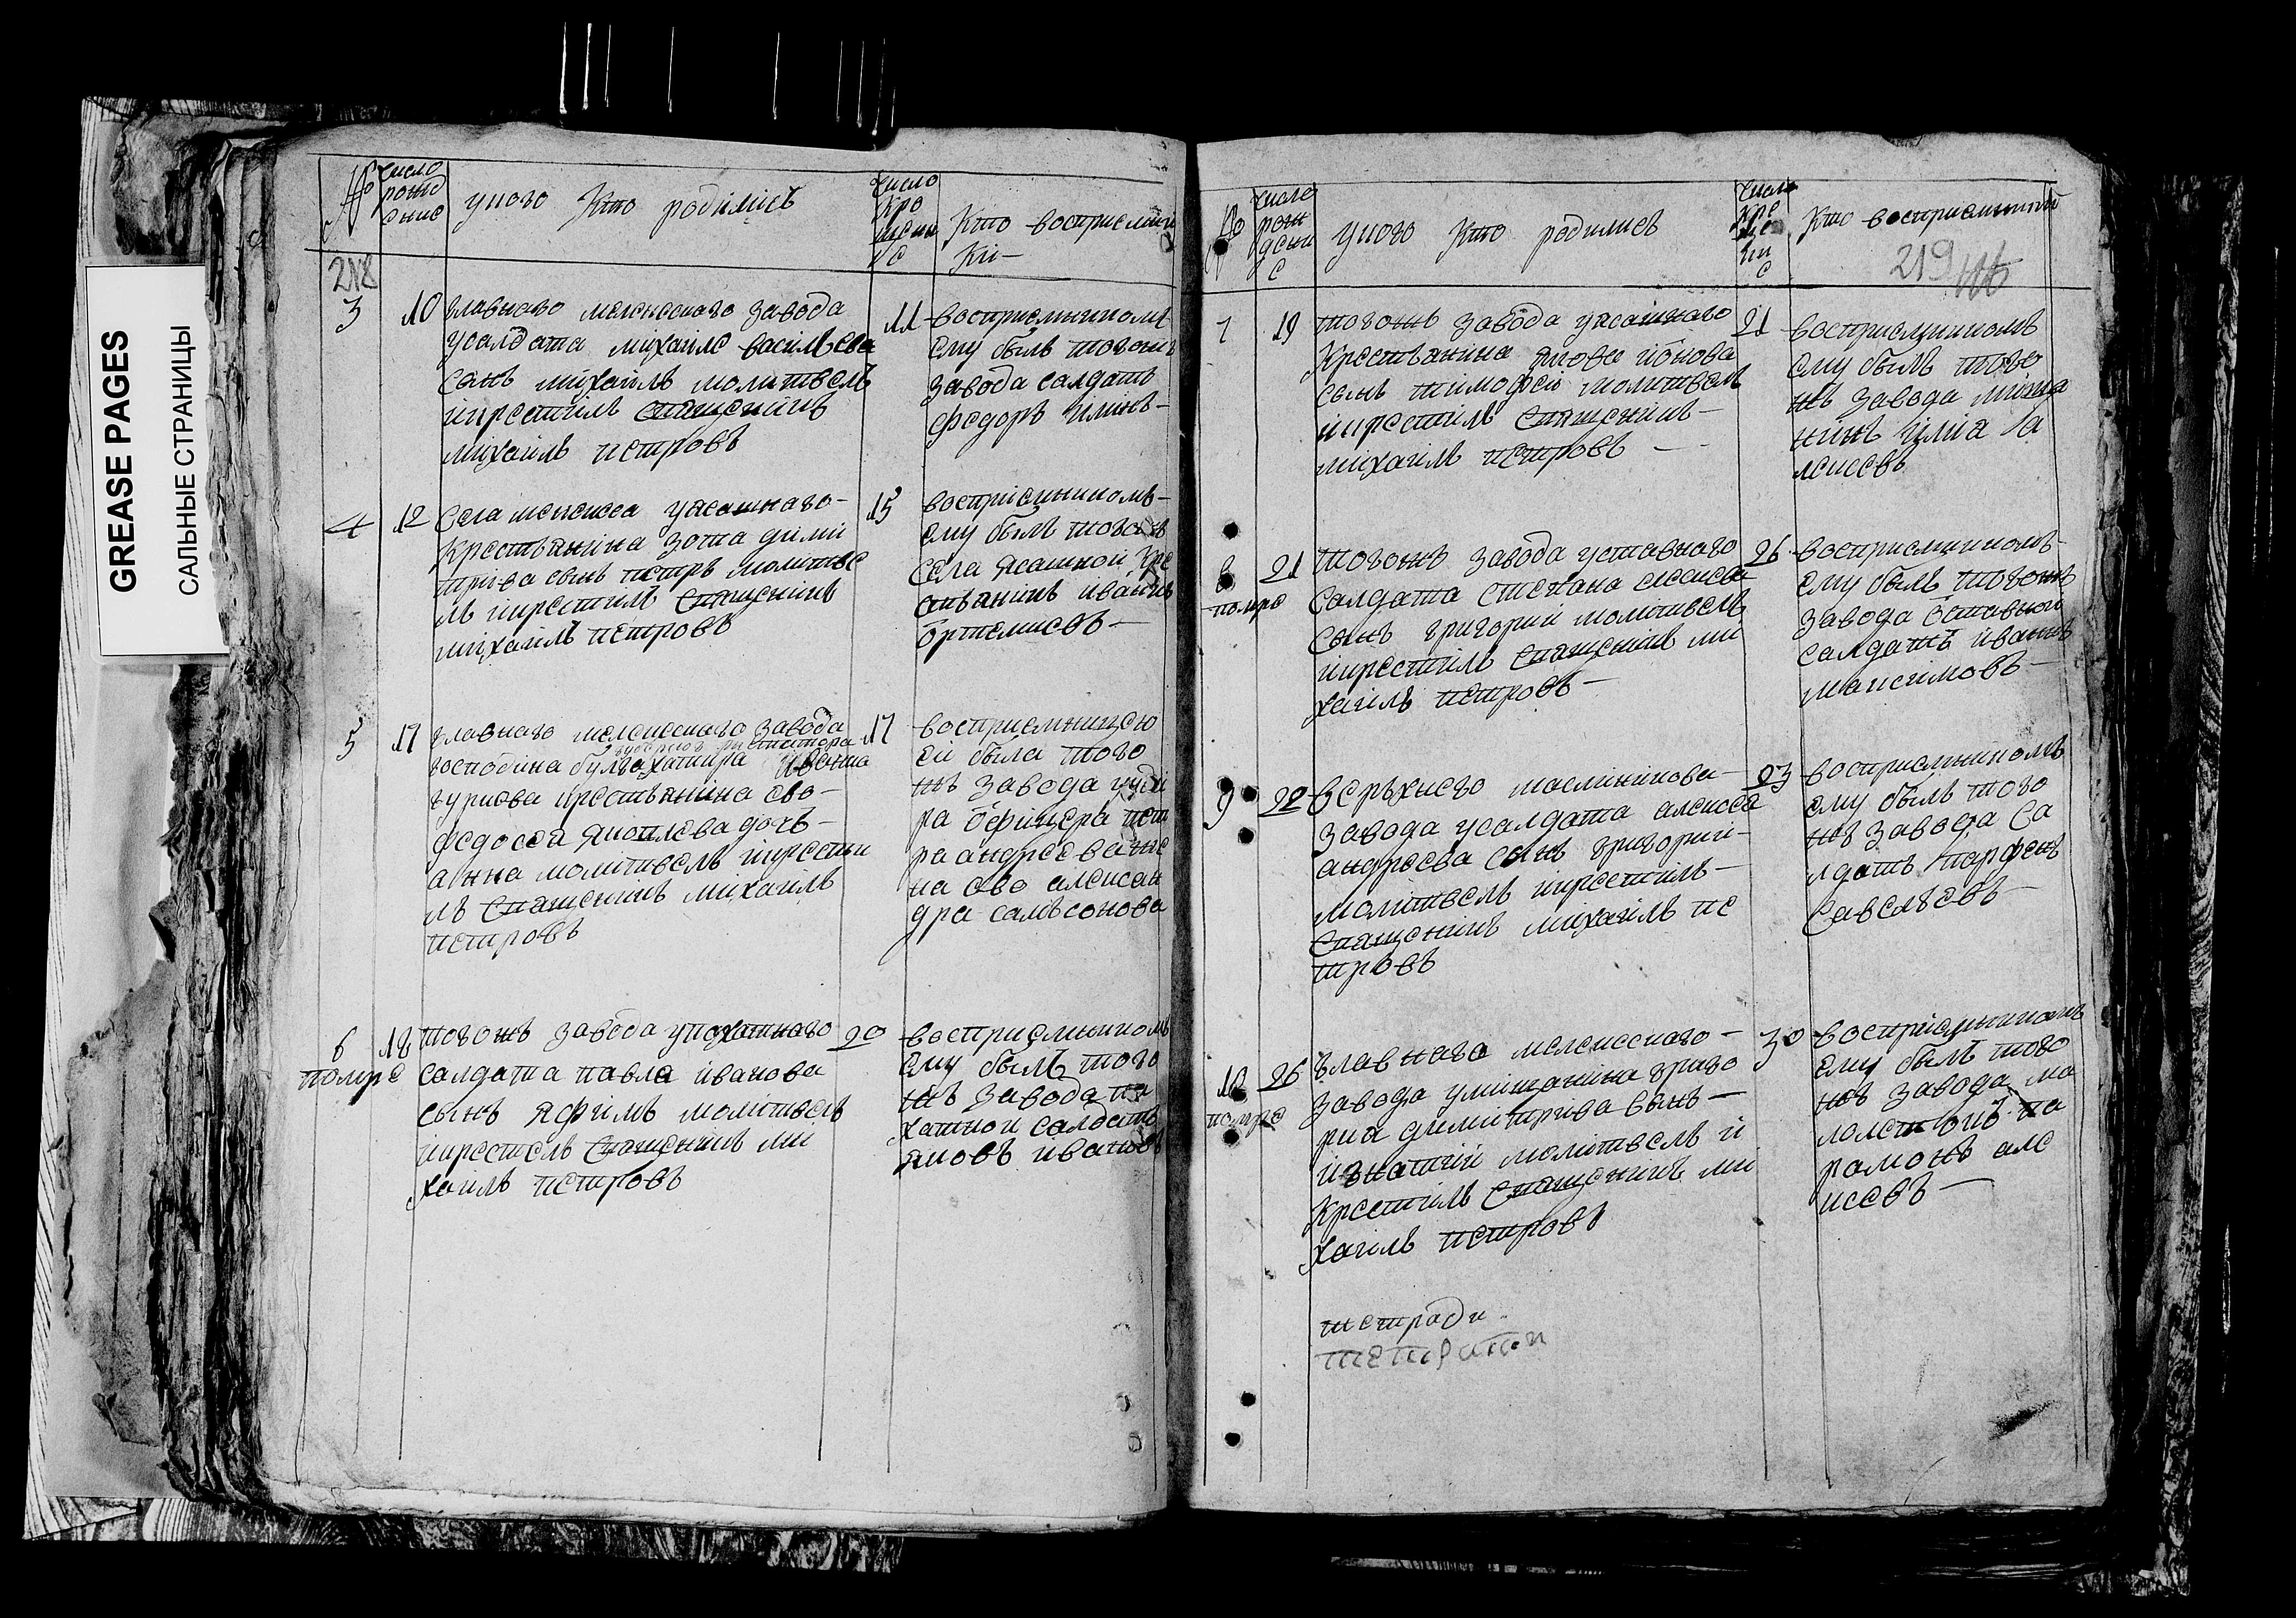 GREASE PAGES
САЛЬНЫЕ СТРАНИЦЫ
№
число
рожд
ение
укого Кто родились
число
кре
щени
е
Кто восприемни
Ки—
218
3
10
главного мелекесского завода
усалдата михаиле василева
сынъ михаилъ молитвелъ
икрестилъ священникъ
михаилъ петровъ
11
восприемникомъ
ему былъ тогожъ
завода салдатъ
федоръ илинъ—
4
12
Села мелекеса уясашнаго—
Крестьянина зота дими
триева сынъ петръ молитве
лъ икрестилъ священникъ
михаилъ петровъ
15
восприемникомъ—
ему былъ тогожъ
села ясашной кре
стьянинъ иванъ
ортемиевъ—
5
17
главного мелекесского завода
господина
гуриова крестьянина ево—
федосея яковлева дочь—
анна молитвелъ икрести
лъ священникъ михаилъ
петровъ
17
восприемницею
ей была того
жъ завода ундъ
ра офицера пет
ра андреева же
на ево алексан
дра самсонова
6
помре
18
тогожъ завода упахатнаго
салдата павла иванова
сынъ яфимъ молитвелъ
икрестелъ священникъ ми
хаилъ петровъ
20
восприемникомъ
ему былъ того
жъ завода па
хатнои салдатъ
яковъ ивановъ
№
число
рож
дени
е
укого Кто родились
число
кре
ще
ни
е
Кто восприемники
219
7
19
тогожъ завода уясашнаго
Крестьянина якова ионова
сынъ тимофей молитвелъ
икрестилъ священникъ—
михаилъ петровъ—
21
восприемникомъ
ему былъ того
жъ завода меща
нинъ илиа а
леиевъ
8
помре
21
тогожъ завода уставнаго
салдата степана елисева
сынъ григорий молитвелъ
икрестилъ священникъ ми
хаилъ петровъ—
26
восприемникомъ—
ему былъ тогожъ
завода оставной
салдатъ иванъ
максимовъ—
9
22
верьхнего масленикова—
завода усалдата алексея
андреева сынъ григорий—
молитвелъ икрестилъ—
священникъ михаилъ пе
тровъ
23
восприемникомъ
ему былъ того
жъ завода са
лдатъ парфенъ
савельевъ—
10
помре
26
главнаго мелекесскаго—
завода умещанина григо
риа димитриева сынъ—
игнатий молитвелъ и
Крестилъ священникъ ми
хаилъ петровъ
30
восприемникомъ
ему былъ того
жъ завода ма
лолетний па
рамонъ але
исеевъ—
тетради